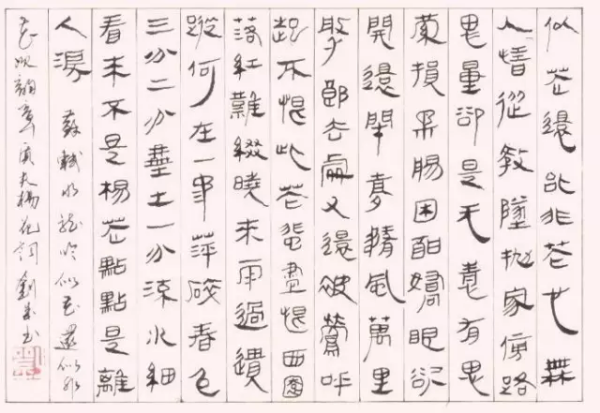 似花還似非花也無
人惜從教墜拋家傍路
思量卻是无意有思
縈損柔腸困酣嬌眼欲
開還閉夢隨風萬里
尋郎去處又還被鶯呼
起不恨此花飛盡恨西園
落紅難綴曉來雨過遺
蹤何在一萍碎春色
三分二分塵土一分流水細
看來不是楊花點點是離
人淚 蘇軾水龍吟似花還似非
花次韻章質夫楊花詞劉書